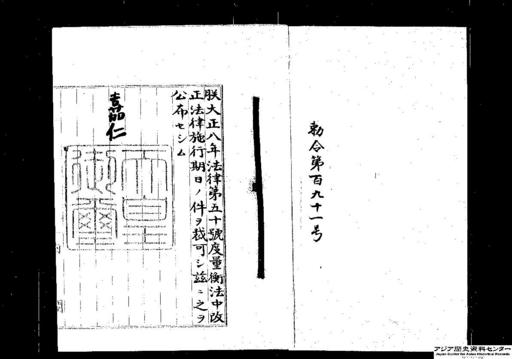 勅令第百九十一号
朕大正八年法律第五十號度量衡法中改
正法律施行期日ノ件ヲ裁可シ茲ニ之ヲ
公布セシム
嘉仁
天皇
御璽
アジア歴史資料センター
Japan Center for Asian Historical Records